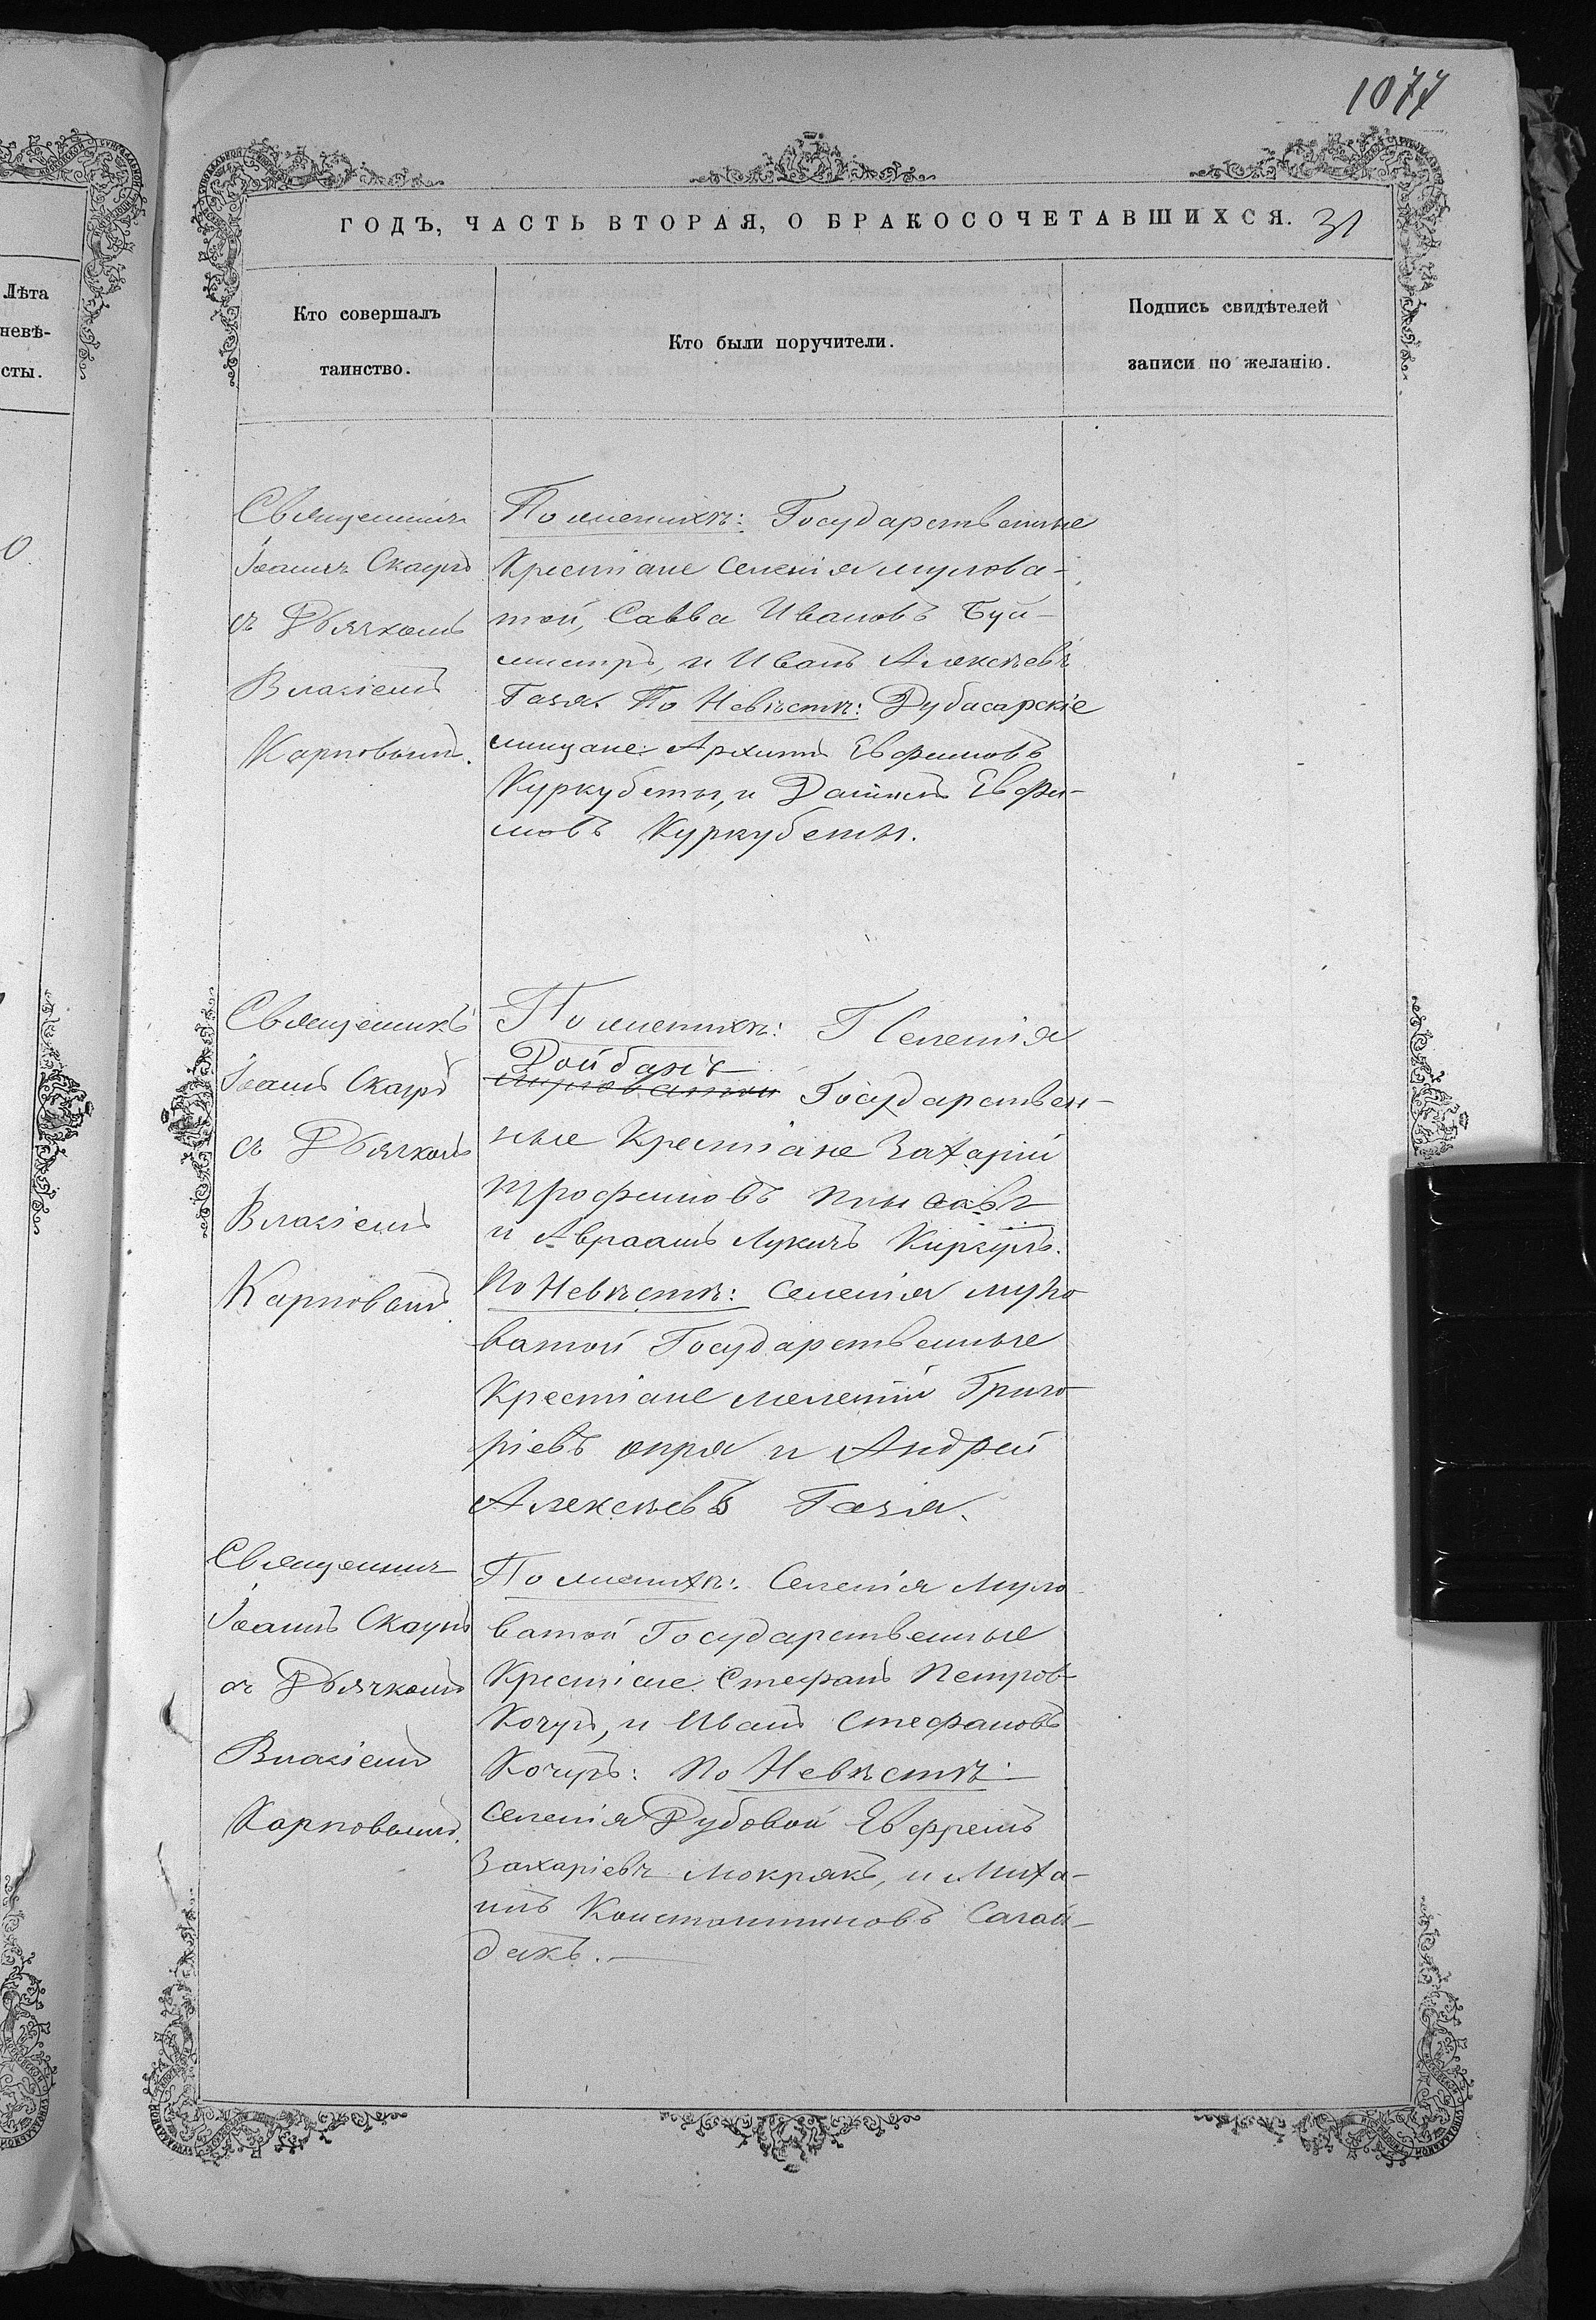 1077
ГОДЪ, ЧАСТЬ ВТОРАЯ, О БРАКОСОЧЕТАВШИХСЯ. 31
Лѣта
невѣ-
сты.
Кто совершалъ
таинство.
Кто были поручители.
Подпись свидѣтелей
записи по желанію.
0
Священникъ
Іоаннъ Скаунъ
съ Дьячкомъ
Власіемъ
Карповымъ.
По женихѣ: Государственные
Крестіане Селенія мулова-
той, Савва Ивановъ Буй-
мистръ, и Иванъ Алексѣевъ
Газя. По Невѣстѣ: Дубасарскіе
мищане: Архипъ Евфимовъ
Куркубеты, и Даніилъ Евфи-
мовъ Куркубеты.
Священникъ
Іоаннъ Скаунъ
съ Дьячкомъ
Власіемъ
Карповымъ.
По женихѣ: Г Селенія
Дойбанъ
муловатой Государствен-
ные Крестіане Захарій
Трофимовъ
и Авраамъ Лукинъ
По Невѣстѣ: Селенія муло
ватой Государственные
Крестіане мелетій Григо-
ріевъ опря и Андрей
Алексѣевъ Газя.
Священникъ
Іоаннъ Скаунъ
съ Дьячкомъ
Власіемъ
Карповымъ.
По женихѣ: Селенія Муло-
ватой Государственные
Крестіане Стефанъ Петров-
Кочуръ, и Иванъ Стефановъ
Кочуръ: По Невѣстѣ:
Селенія Дубовой Евфремъ
Захаріевъ мокрякъ, и Миха-
илъ Константиновъ Сагай-
дакъ.